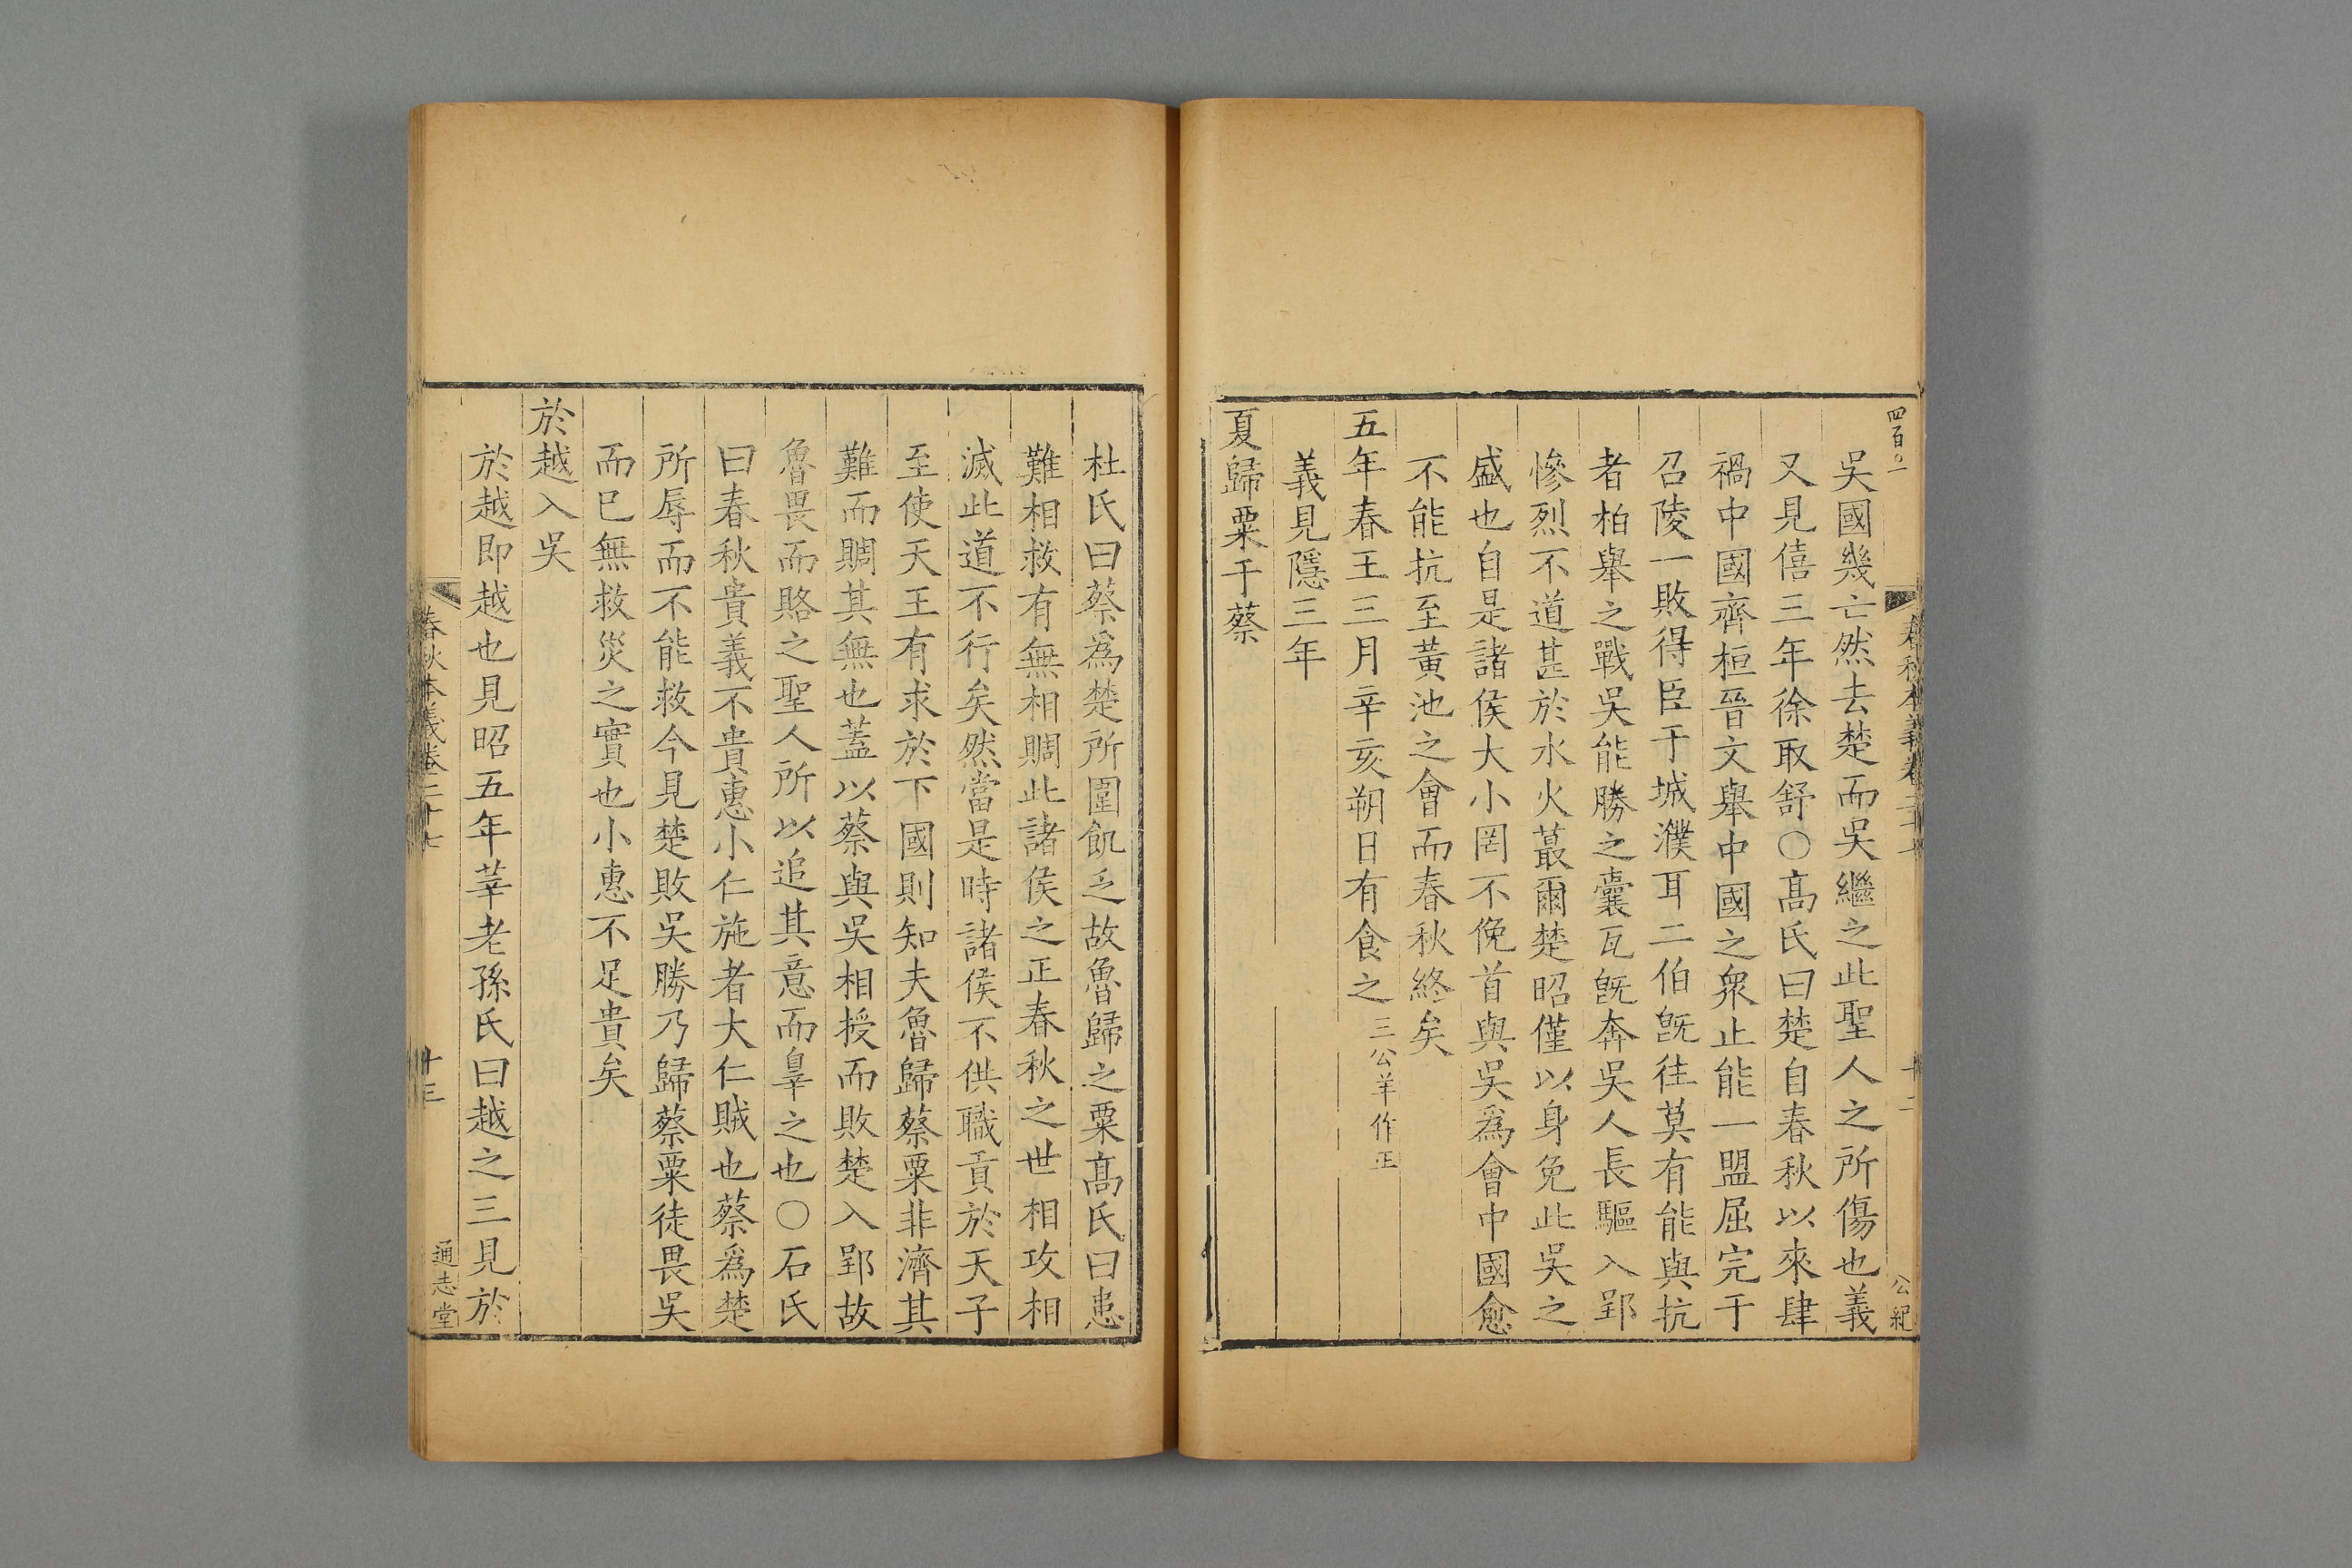 四百〇一
春秋本義卷二十七
十二
公紀
吳國幾亡然去楚而吳繼之此聖人之所傷也義
又見僖三年徐取舒〇髙氏曰楚自春秋以來肆
禍中國齊桓晉文舉中國之衆止能一盟屈完于
召陵一敗得臣于城濮耳二伯旣往莫有能與抗
者柏舉之戰吳能勝之囊瓦旣奔吳人長驅入郢
慘烈不道甚於水火蕞爾楚昭僅以身免此吳之
盛也自是諸侯大小罔不俛首與吳爲會中國愈
不能抗至黃池之會而春秋終矣
五年春王三月辛亥朔日有食之三公羊作正
義見隱三年
夏歸粟于蔡
杜氏曰蔡爲楚所圍飢乏故魯歸之粟髙氏曰患
難相救有無相賙此諸侯之正春秋之世相攻相
滅此道不行矣然當是時諸侯不供職貢於天子
至使天王有求於下國則知夫魯歸蔡粟非濟其
難而賙其無也蓋以蔡與吳相授而敗楚入郢故
魯畏而賂之聖人所以追其意而辠之也〇石氏
曰春秋貴義不貴惠小仁施者大仁賊也蔡爲楚
所辱而不能救今見楚敗吳勝乃歸蔡粟徒畏吳
而已無救災之實也小惠不足貴矣
於越入吳
於越即越也見昭五年莘老孫氏曰越之三見於
春秋本義卷二十七
十三
通志堂